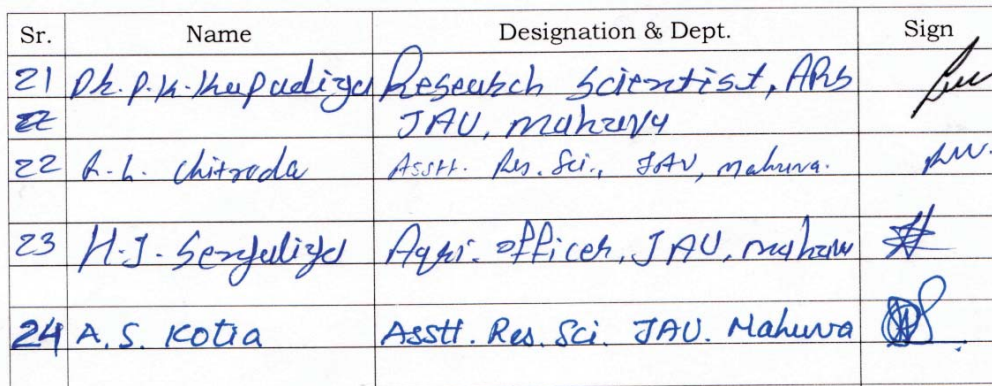 Sr. Name Designation & Dept. Sign
21 Dr. P. K. Kapadiya Research Scientist, ARS
JAU, Mahuva
22 R. L. Chitroda Asstt. Res. Sci., JAU, Mahuva.
23 H. J. Senjaliya Agri. officer, JAU, Mahuva
24 A. S. Kotia Asstt. Res. Sci. JAU. Mahuva